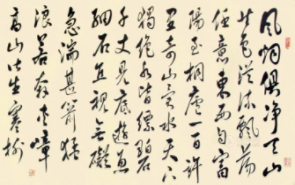 風烟俱净天山
共色從流飄蕩
任意東西自富
陽至桐廬一百許
里奇山異水天下
獨絶水皆縹碧
千丈見底遊魚
細石直視無礙
急湍甚箭猛
浪若奔夾嶂
高山皆生寒樹